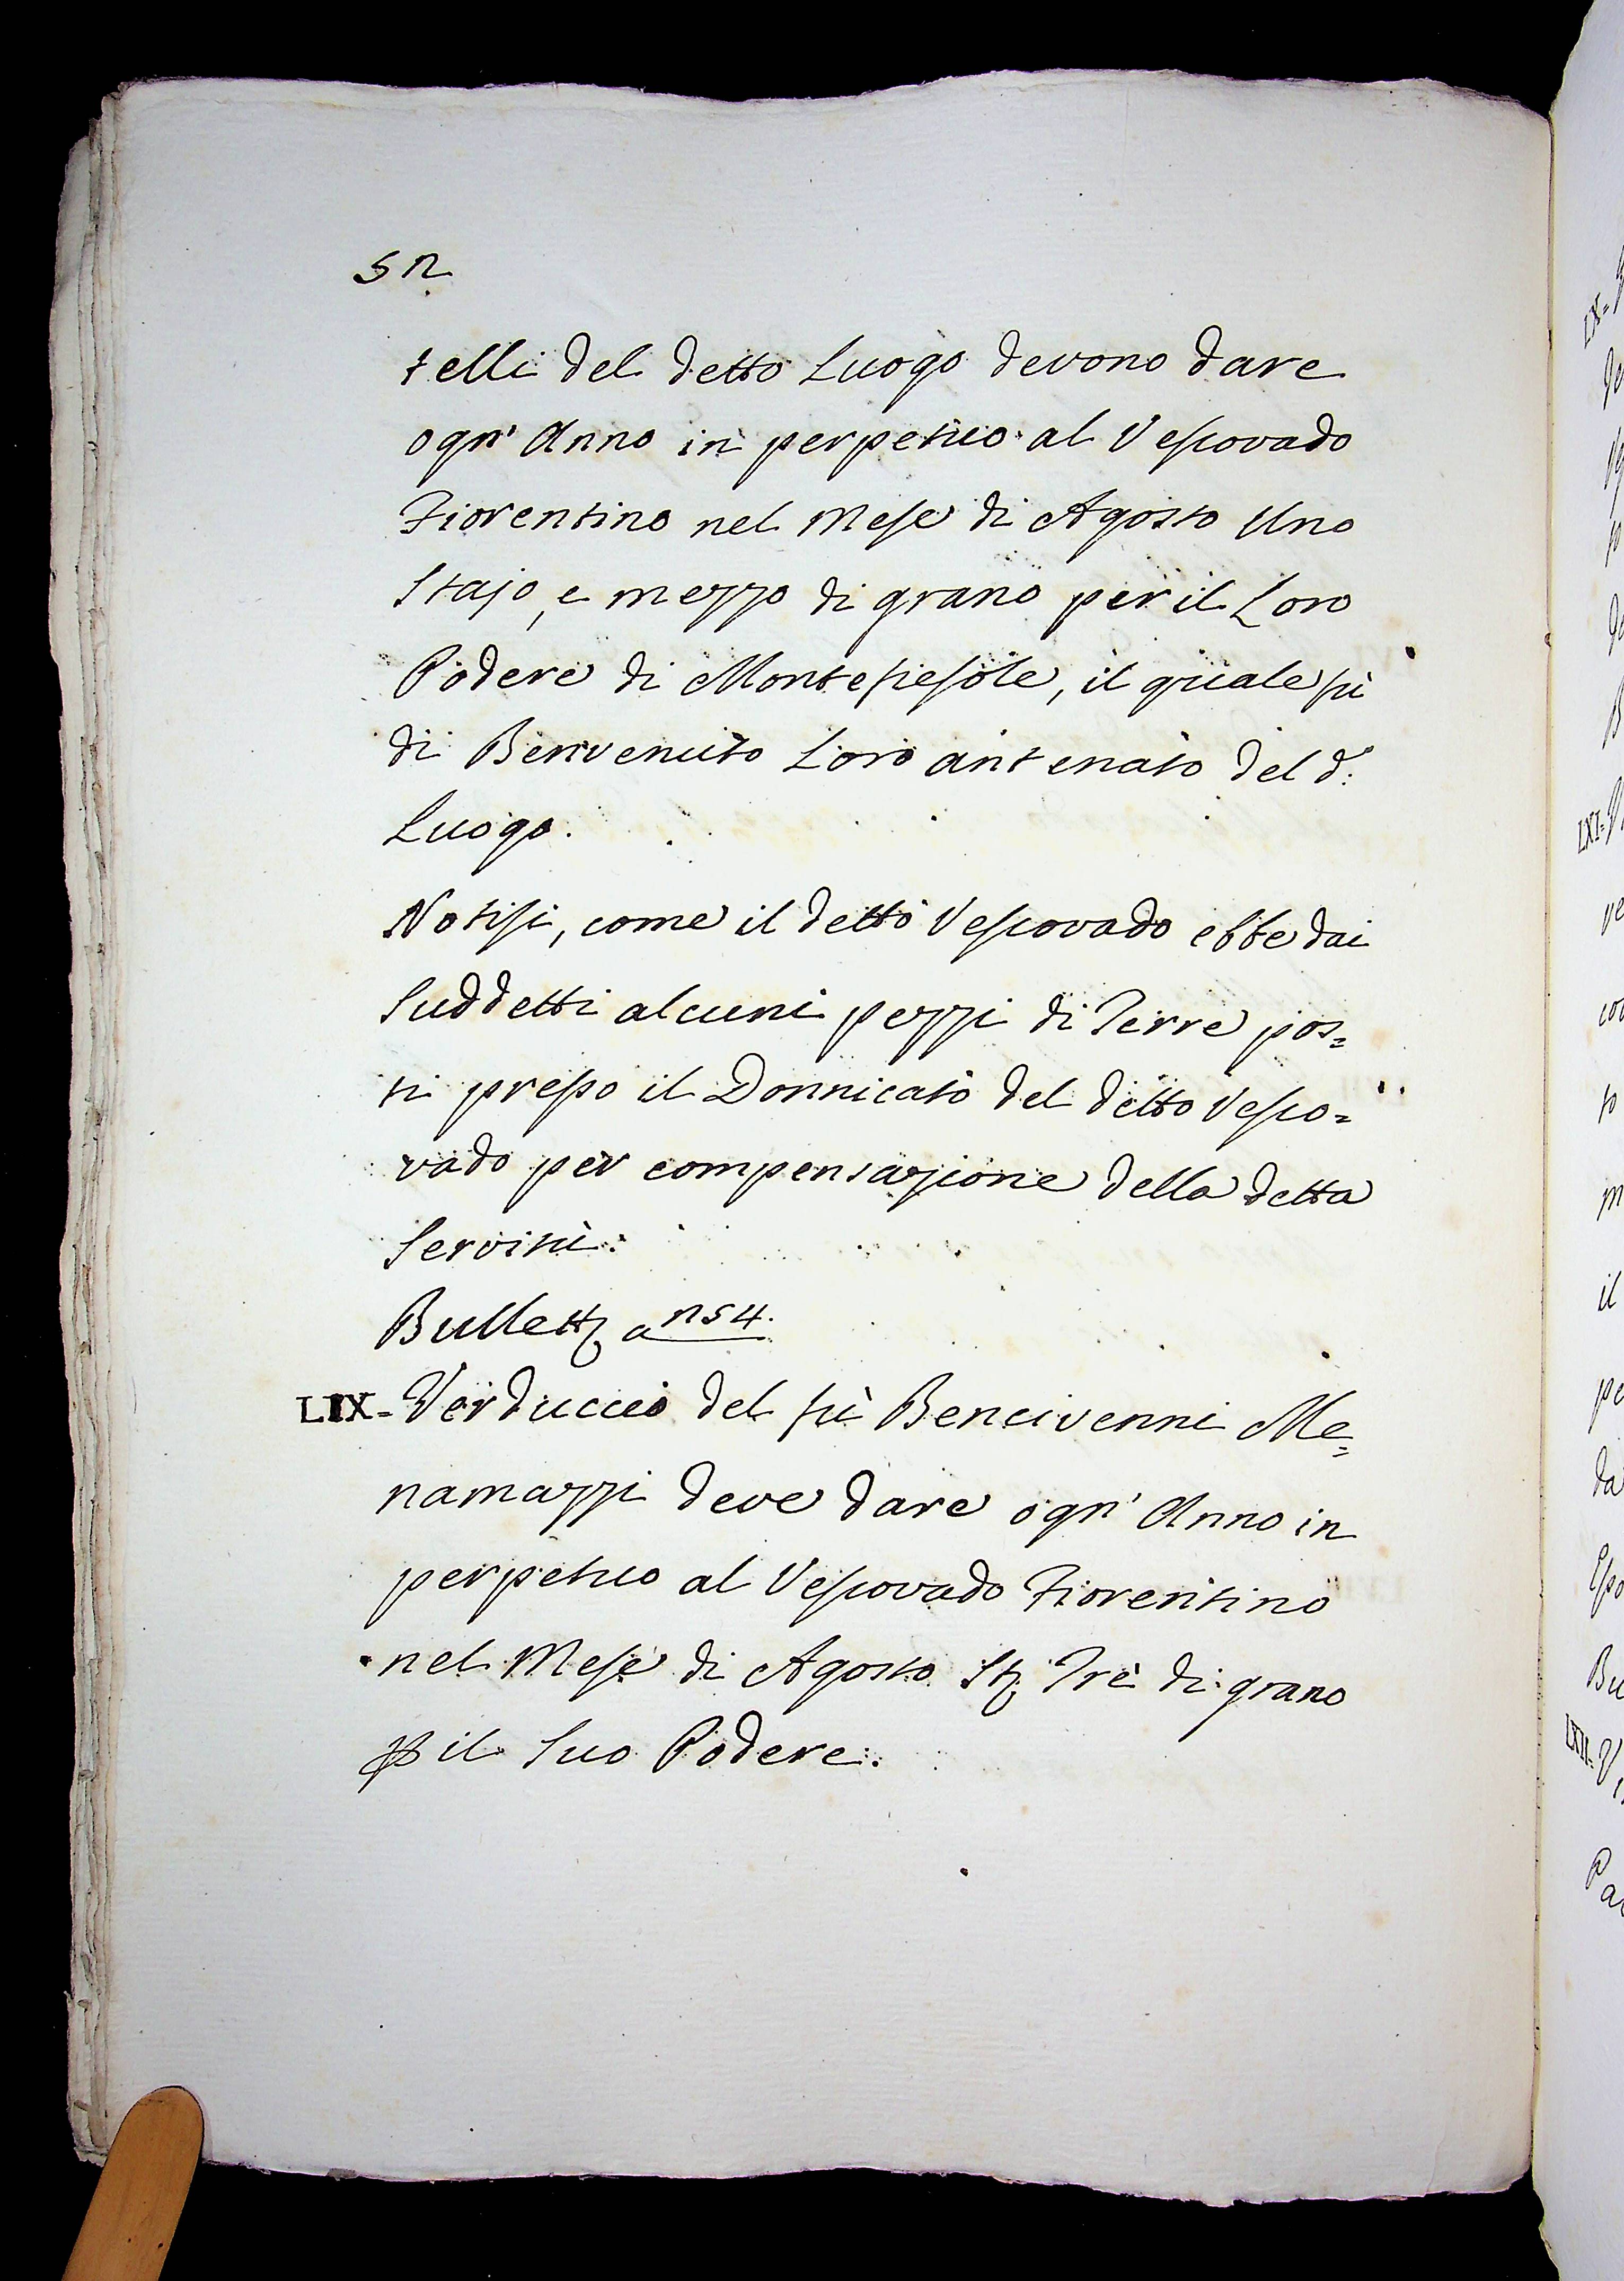 52
telli del detto Luogo devono dare
ogn' Anno in perpetuo al Vescovado
Fiorentino nel Mese di Agosto Uno
Stajo, e mezzo di grano per il Loro
Podere di Montefiesole, il quale fù
di Benvenuto Loro antenato del d:
Luogo.
Notisi, come il detto Vescovado ebbe dai
Suddetti alcuni pezzi di Terre pos=
ti presso il Donnicato del detto Vesco=
vado per compensazione della detta
Servitù.
Bullett a 254.
LIX- Verduccio del fù Bencivenni Me=
namazzi deve dare ogn' Anno in
perpetuo al Vescovado Fiorentino
nel Mese di Agosto St Trè di grano
p il Suo Podere.